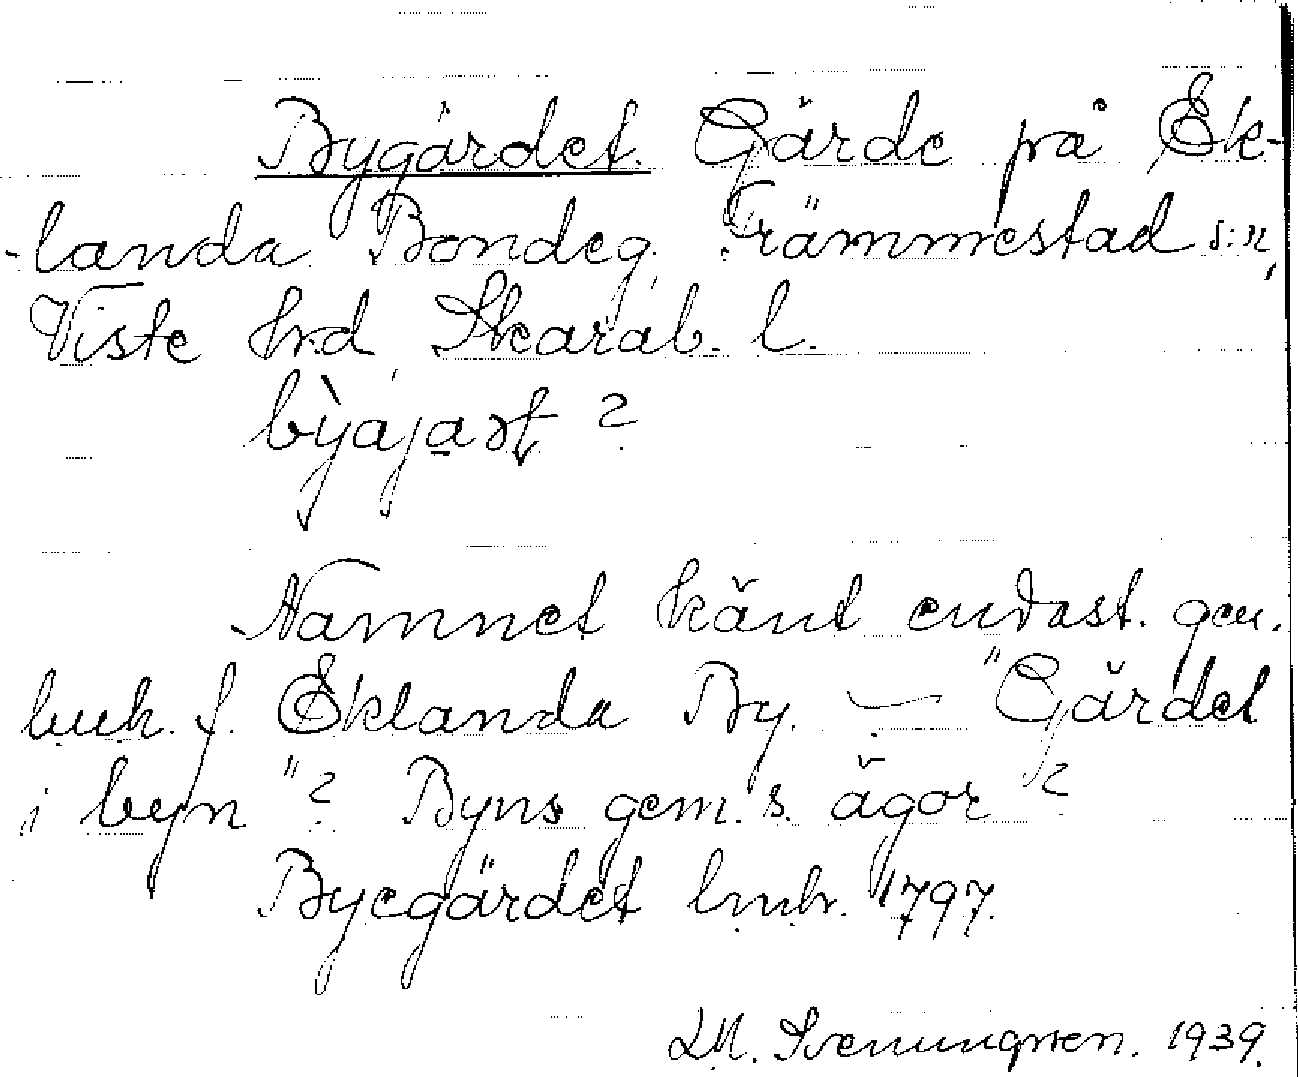 Bygärdet. Gärde på Ek-
landa Bondeg. Främmestad s:n,
Viste hrd Skarab. l.
bỳajaṛt ?
Namnet känt endast. gen.
luh. f. Eklanda By. — "Gärdet
i byn"? Byns gem. s. ägor?
Byegärdet lmh. 1797.
L.M. Svenungsson. 1939.